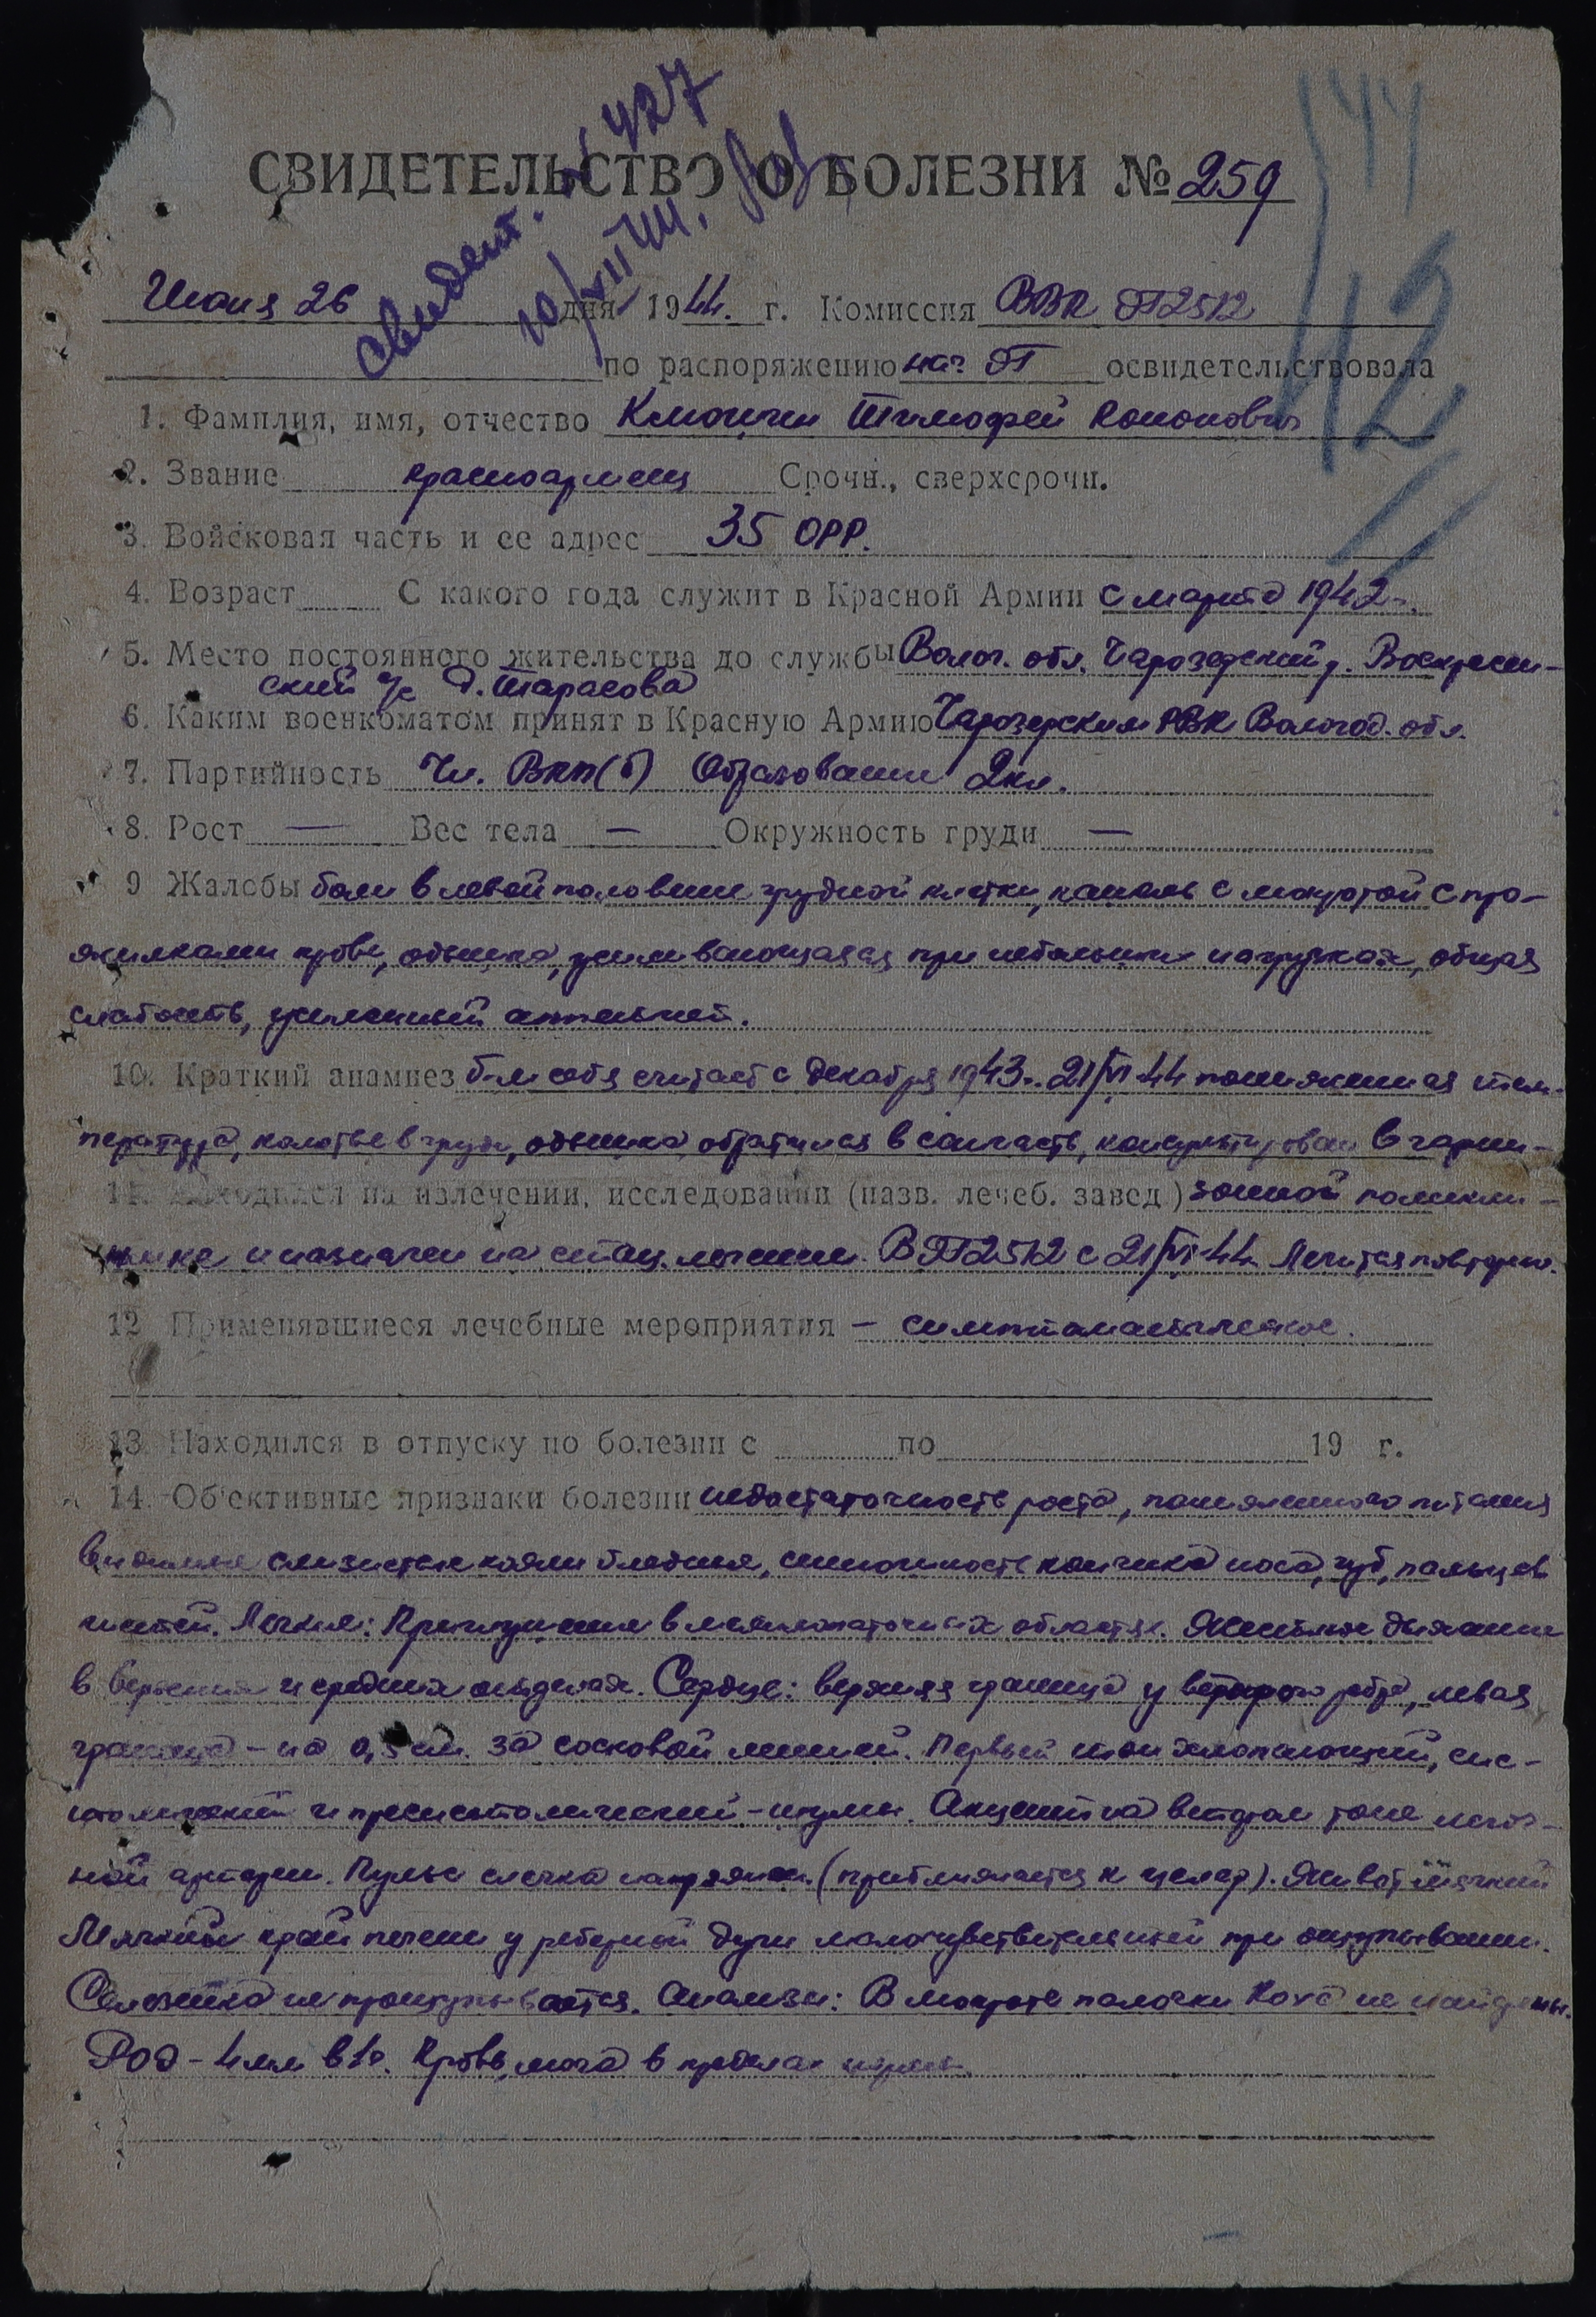 144
свидет. № 427
10/XII 44.
СВИДЕТЕЛЬСТВО О БОЛЕЗНИ № 259
142
Июня 26 дня 1944. г. Комиссия ВВК ЭГ2512
по распоряжению нач ЭГ освидетельствовала
1. Фамилия, имя, отчество Тимофей Кононович
2. Звание красноармеец Срочн., сверхсрочн.
3. Войсковая часть и ее адрес 35 ОРР.
4. Возраст С какого года служит в Красной Армии с марта 1942 г.
5. Место постоянного жительства до службы Волог. обл. Чарозерский р. Воскресен-
ский с/с д. Тарасова
6. Каким военкоматом принят в Красную Армию Чарозерским РВК Вологод. обл.
7. Партийность Чл. ВКП(б) Образование 2 кл.
8. Рост — Вес тела — Окружность груди —
9 Жалобы боли в левой половине грудной клетки, кашель с мокротой с про-
жилками крови, одышка, усиливающаяся при небольших нагрузках, общая
слабость, усиленный аппетит.
10. Краткий анамнез б-м себя считает с декабря 1943 г. 21/VI 44 тем-
пература, колотье в груди, одышка, обратился в санчасть, консультирован в гарни-
11. Находился на излечении, исследовании (назв. лечеб. завед) зонной поликли-
нике и назначен на стац. лечение. В ЭГ2512 с 21/VI-44 Лечится повторно.
12 Применявшиеся лечебные мероприятия – симптоматическое.
13. Находился в отпуску по болезни с по 19 г.
14. Об'ективные признаки болезни недостаточность роста, пониженного питания
видимые слизистые кожи бледные, синюшность кончика носа, губ, пальцев
кистей. Легкие: Притупление в межлопаточных областях. Жесткое дыхание
в верхних и средних отделах. Сердце: верхняя граница у второго ребра, левая
граница – на 0,5 см. за сосковой линией. Первый тон хлопающий, сис-
толический и пресистолический – шумы. Акцент на втором тоне легоч-
ной артерии. Пульс слегка напряжен. (приближается к целер). Живот мягкий
Мягкий край печени у реберной дуги малочувствительный при ощупывании.
Селезенка не прощупывается. Анализы: В мокроте палочки Коха не найдены.
РОЭ – 4 мм в 1 ч. Кровь, моча в пределах нормы.